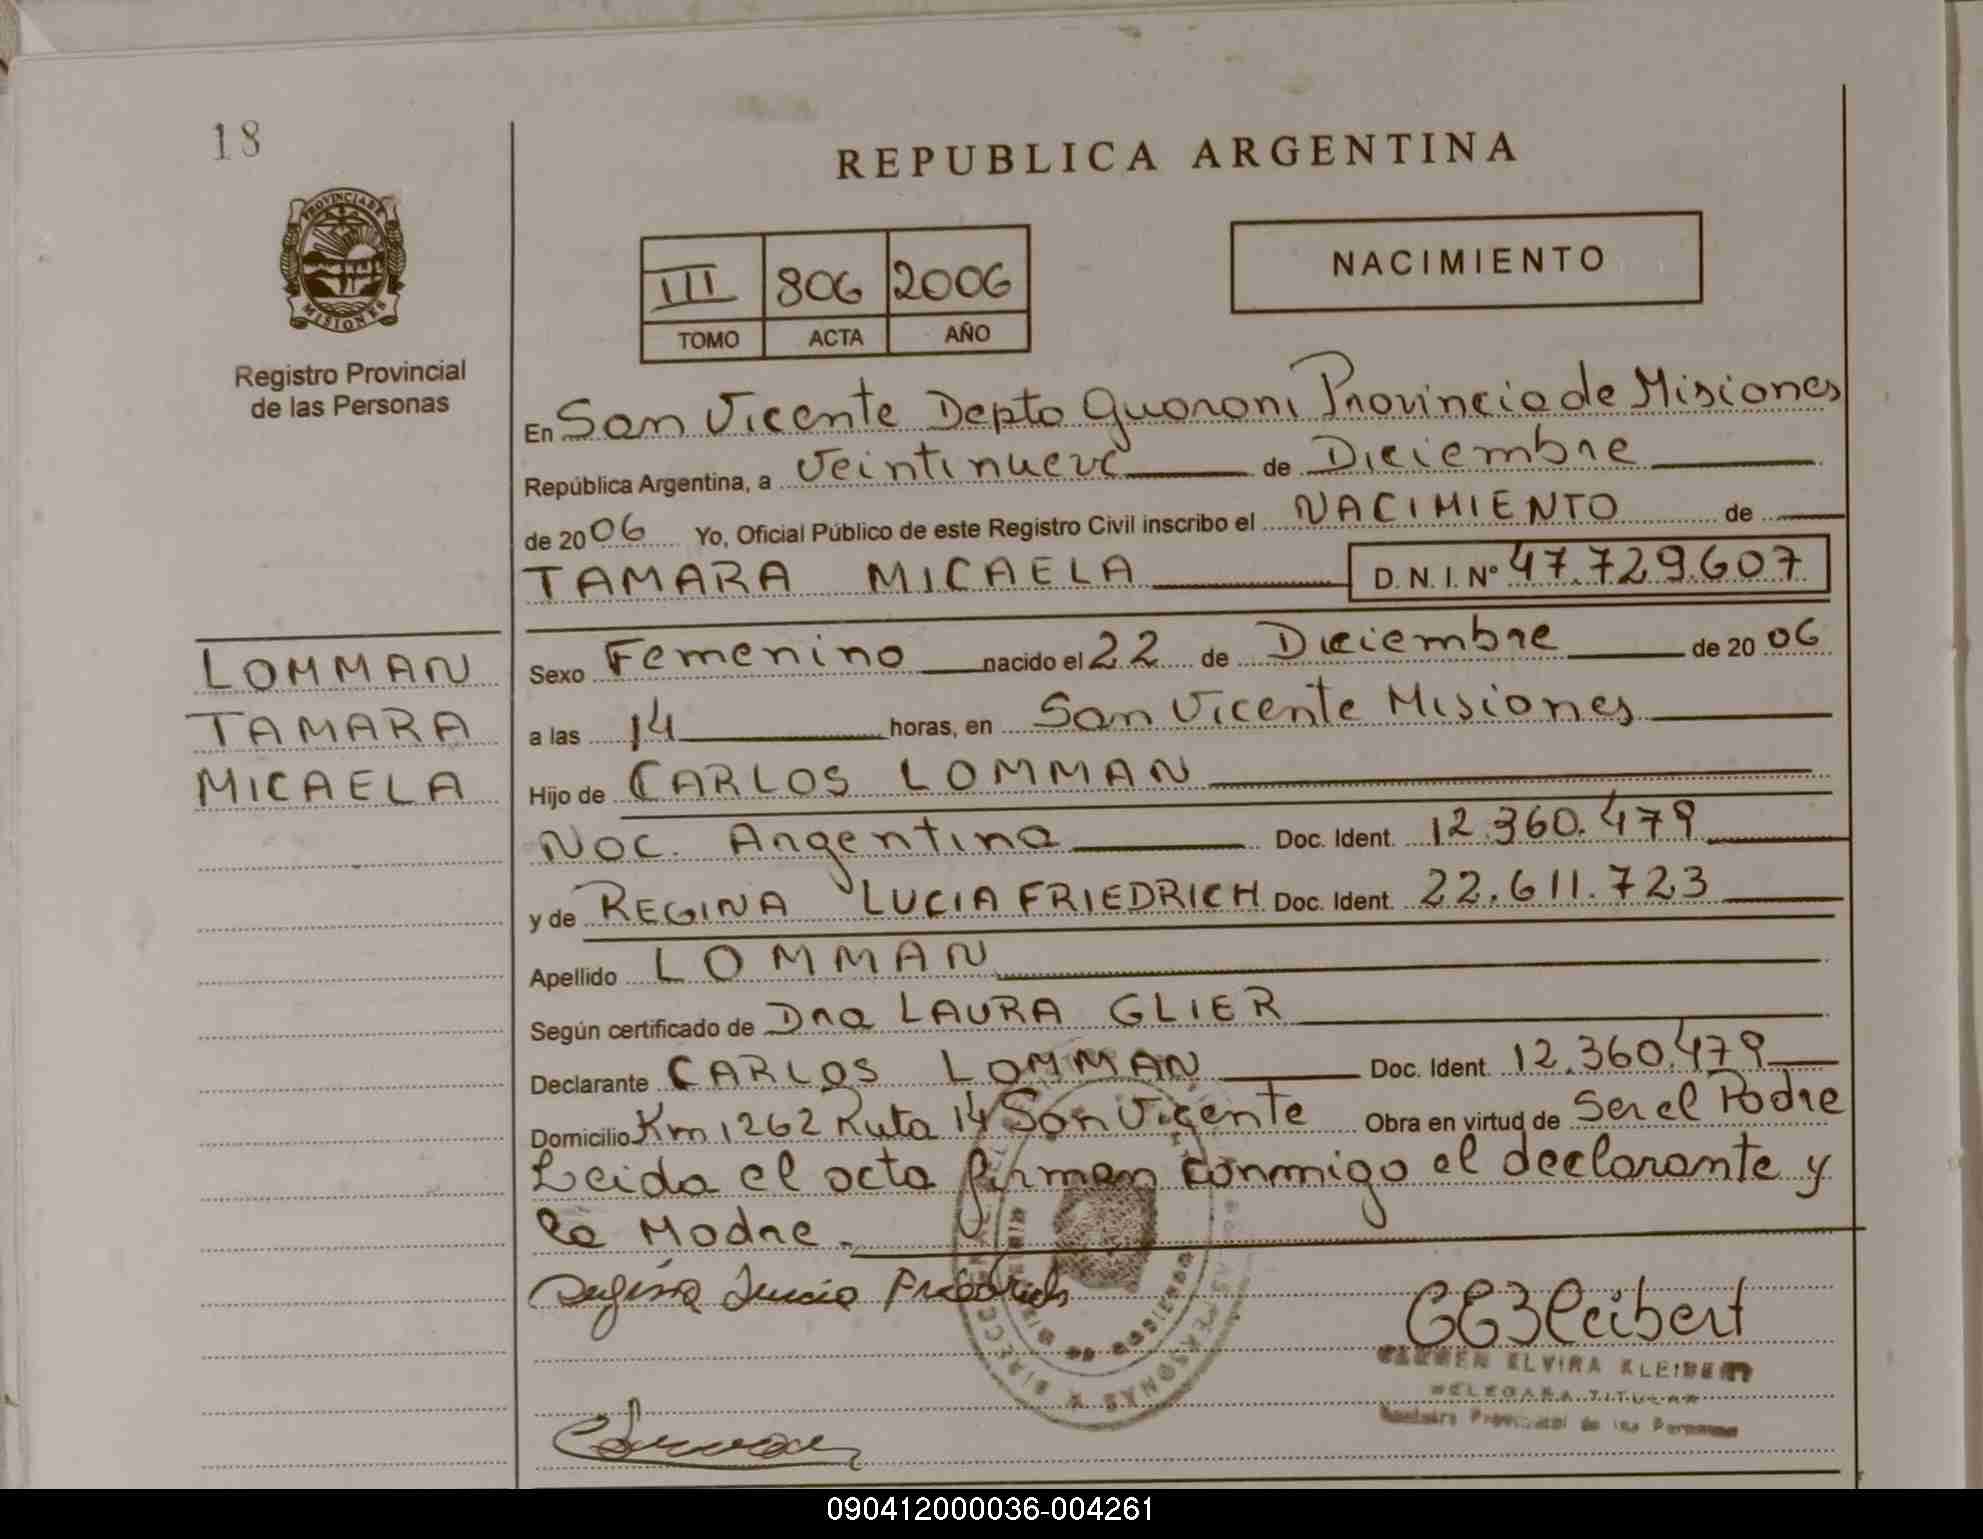 18
REPUBLICA ARGENTINA
PROVINCIA DE
MISIONES
Registro Provincial
de las Personas
III 806 2006
TOMO ACTA AÑO
NACIMIENTO
En San Vicente Depto Guarani Provincia de Misiones
República Argentina, a Veintinueve de Diciembre
de 2006 Yo, Oficial Público de este Registro Civil inscribo el NACIMIENTO de
TAMARA MICAELA D.N.I. Nº 47.729.607
LOMMAN
TAMARA
MICAELA
Sexo Femenino nacido el 22 de Diciembre de 2006
a las 14 horas, en San Vicente Misiones
Hijo de CARLOS LOMMAN
Nac. Argentina Doc. Ident. 12.360.479
y de REGINA LUCIA FRIEDRICH Doc. Ident. 22.611.723
Apellido LOMMAN
Según certificado de Dra LAURA GLIER
Declarante CARLOS LOMMAN Doc. Ident. 12.360.479
Domicilio Km 1262 Ruta 14 San Vicente Obra en virtud de Ser el Padre
Leida el acta firman conmigo el declarante y
la Madre.
Regina Lucia Friedrich
CARMEN ELVIRA KLEIBERT
DELEGADA TITULAR
Registro Provincial de las Personas
090412000036-004261